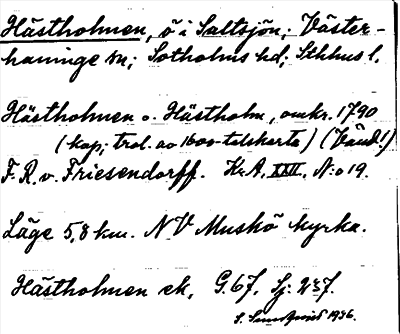 Hästholmen, ö i Saltsjön, Väster-
haninge sn; Sotholms hd; Sthlms l.
Hästholmen o. Hästholm, omkr. 1790
(kop; trol. av 1600-talskarta) (Vänd!)
F. R. v. Friesendorff. Kr.A. XXII, N:o 19.
Läge 5,8 km. NV Muskö kyrka.
Hästholmen ek, G. 67, Sj: 237.
S. Sundqvist 1936.